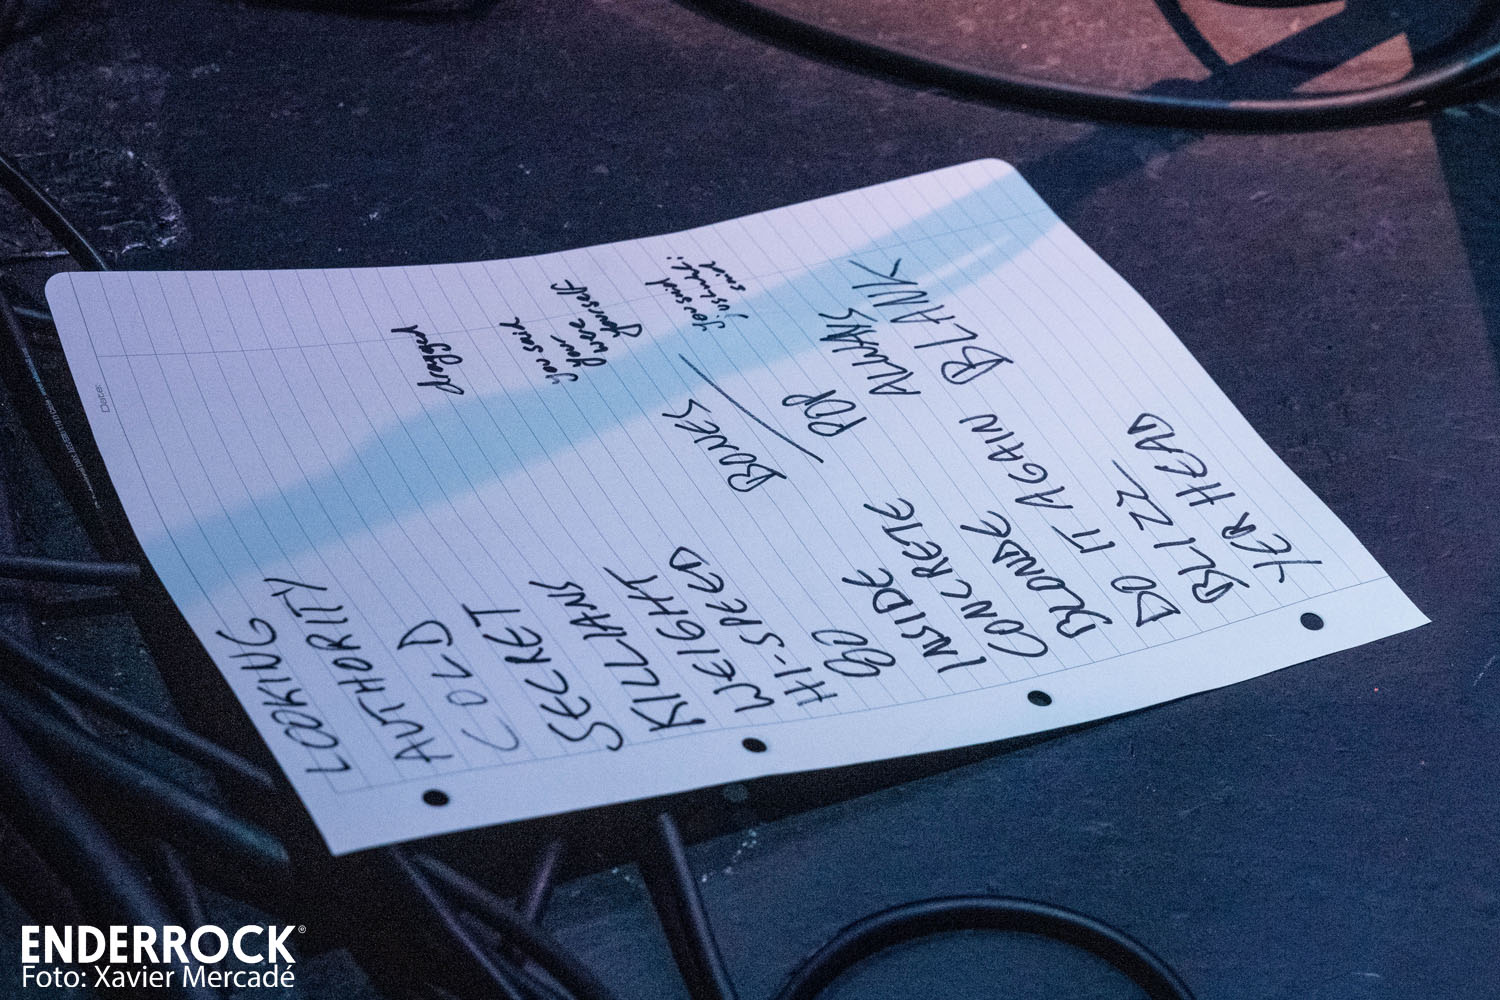 Date:
LOOKING
AUTHORITY
COLD
SECRET
KILLIANS
WEIGHT
HI-SPEED
80
INSIDE
CONCRETE
BLONDE
DO IT AGAIN
BLIZZ
YER HEAD
BONES /
POP
ALWAYS
BLANK
dragged
you said
your
were
yourself
you said
said
ENDERROCK®
Foto: Xavier Mercadé